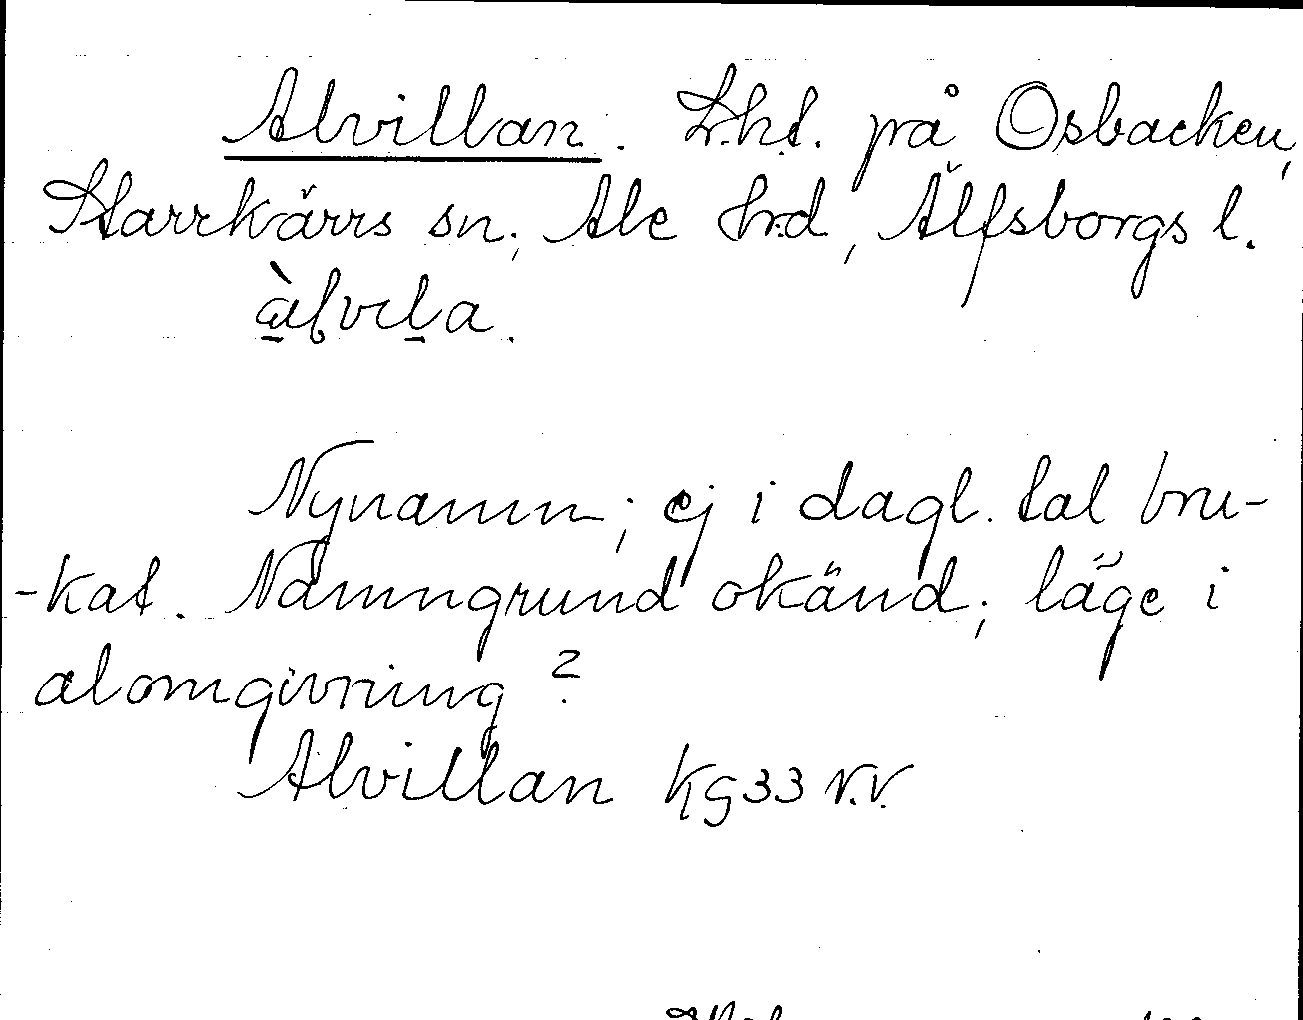 Alvillan. Lht. på Osbacken,
Starrkärrs sn, Ale hrd, Älfsborgs l.
àlvila.
Nynamn; ej i dagl. tal bru-
-kat. Namngrund okänd; läge i
alomgivning?
Alvillan KG33 N.V.